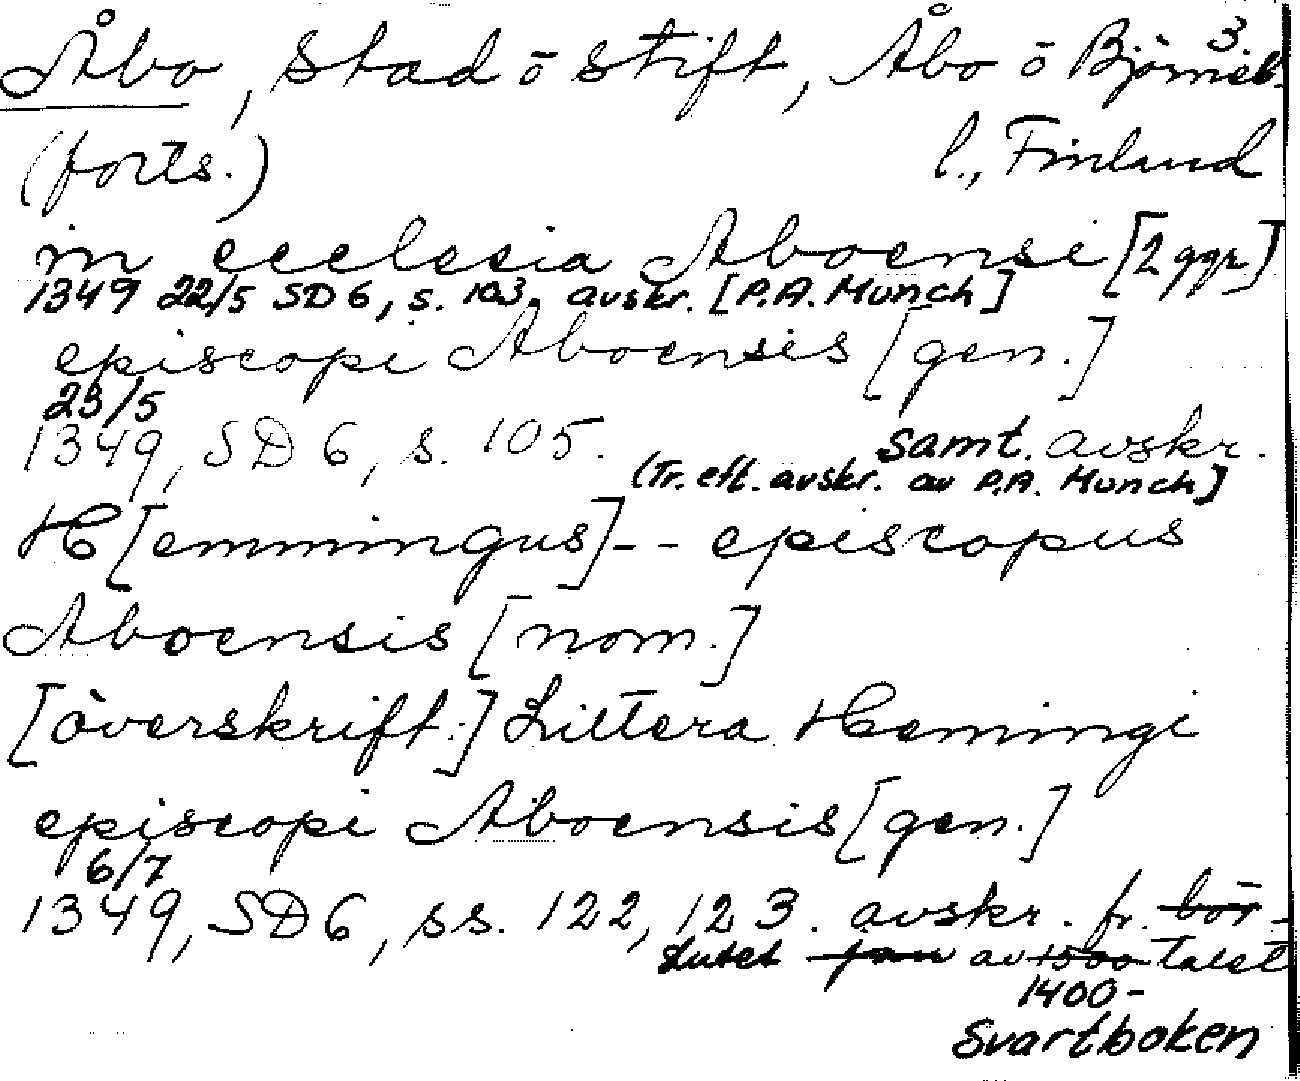 3.
Åbo, stad o stift, Åbo o Björneb.
(forts.) l., Finland
in ecclesia Aboensi [2 ggr]
1349 22/5 SD 6, s. 103. avskr. [P.A. Munch]
episcopi Aboensis [gen.]
23/5
1349, SD 6, s. 105. samt. avskr.
(Tr. eft. avskr. av P.A. Munch]
H[emmingus] - - episcopus
Aboensis [nom.]
[överskrift:] Littera Hemingi
episcopi Aboensis [gen.]
6/7
1349, SD 6, ss. 122, 123. avskr. fr. bör-
slutet jan av 1500 talet
1400-
Svartboken